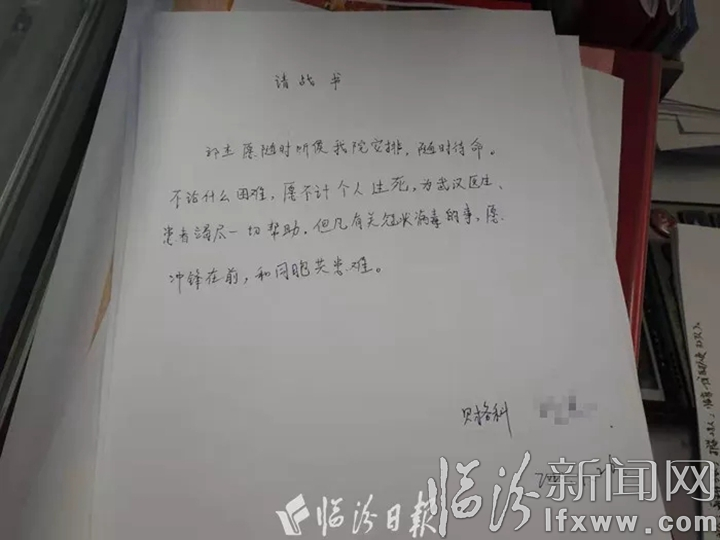 请战书
郭杰愿随时听侯我院安排,随时待命。
不论什么困难,愿不计个人生死,为武汉医生、
患者竭尽一切帮助,但凡有关冠状病毒的事,愿
冲锋在前,和同胞共患难。
财格科
临汾新闻网
临汾日报
lfxww.com